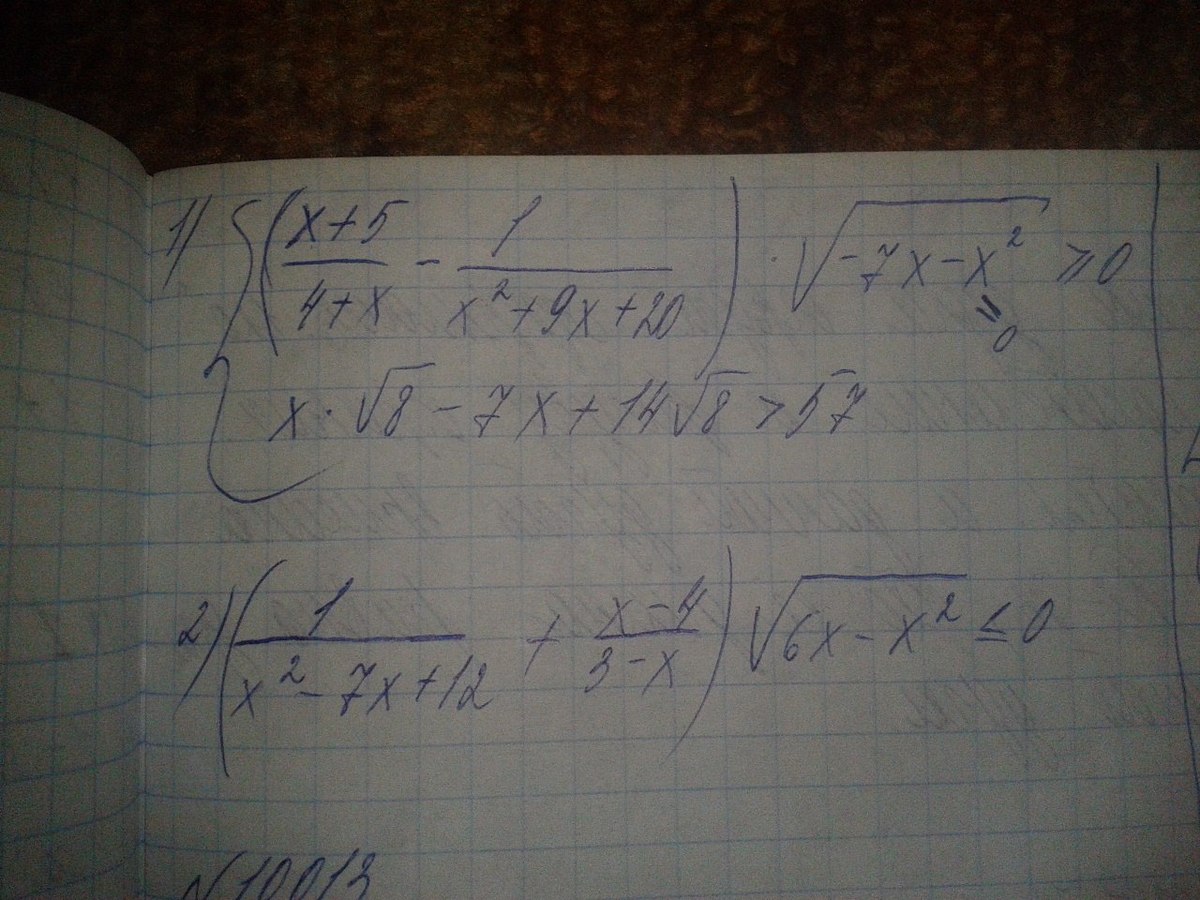 1) { ( (x+5)/(4+x) - 1/(x²+9x+20) ) · √(-7x-x²) ≥ 0
≥ 0
x·√8 - 7x + 14√8 > 57
2) ( 1/(x²-7x+12) + (x-4)/(3-x) ) √(6x-x²) ≤ 0
√10013